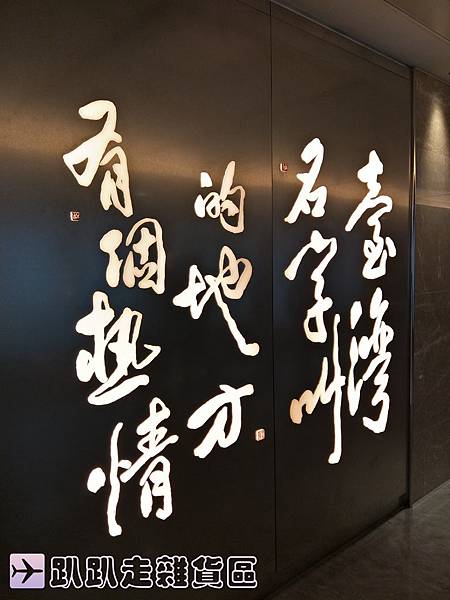 有個热情
的地方
名字叫
臺灣
趴趴走雜貨區